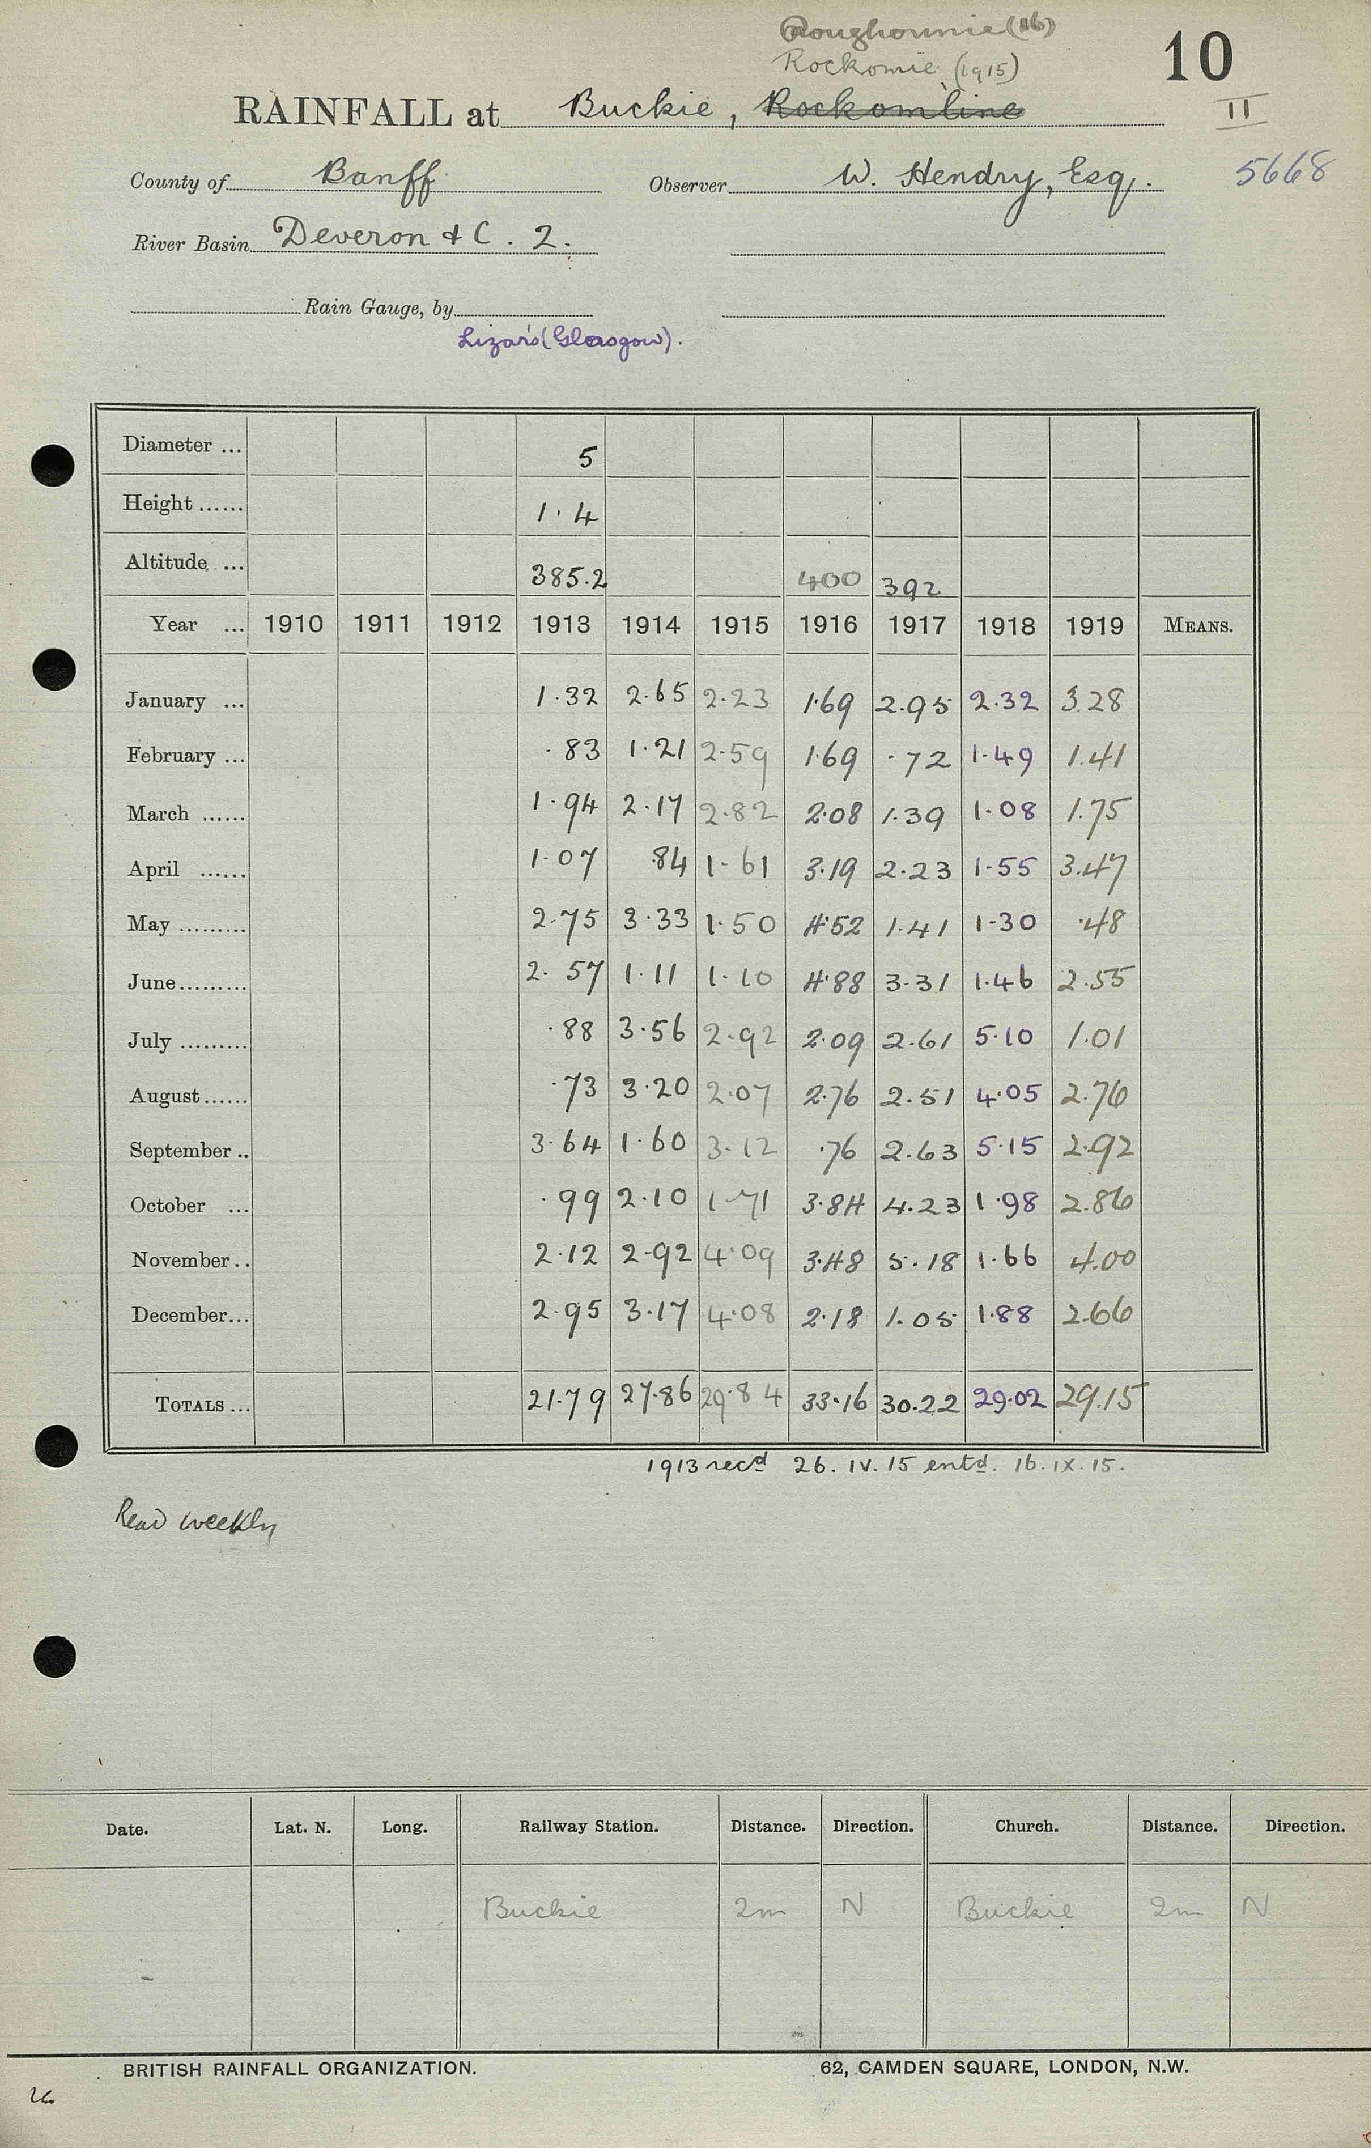 Roughournie (16)
Rockomie (1915)
10
RAINFALL at Buckie, Rockomline
II
County of Banff Observer W. Hendry, Esq. 5668
River Basin Deveron & C. 2.
Rain Gauge, by
Lizars (Glasgow).
Diameter ... 5
Height ...... 1.4
Altitude ... 385.2 400 392
Year ... 1910 1911 1912 1913 1914 1915 1916 1917 1918 1919 MEANS.
January ... 1.32 2.65 2.23 1.69 2.95 2.32 3.28
February ... .83 1.21 2.59 1.69 .72 1.49 1.41
March ...... 1.94 2.17 2.82 2.08 1.39 1.08 1.75
April ...... 1.07 .84 1.61 3.19 2.23 1.55 3.47
May ......... 2.75 3.33 1.50 4.52 1.41 1.30 .48
June......... 2.57 1.11 1.10 4.88 3.31 1.46 2.55
July ......... .88 3.56 2.92 2.09 2.61 5.10 1.01
August...... .73 3.20 2.07 2.76 2.51 4.05 2.76
September .. 3.64 1.60 3.12 .76 2.63 5.15 2.92
October ... .99 2.10 1.71 3.84 4.23 1.98 2.86
November .. 2.12 2.92 4.09 3.48 5.18 1.66 4.00
December... 2.95 3.17 4.08 2.18 1.05 1.88 2.66
TOTALS ... 21.79 27.86 29.84 33.16 30.22 29.02 29.15
1913 recd 26.IV.15 entd. 16.IX.15.
Read weekly
Date. Lat. N. Long. Railway Station. Distance. Direction. Church. Distance. Direction.
Buckie 2m N Buckie 2m N
BRITISH RAINFALL ORGANIZATION. 62, CAMDEN SQUARE, LONDON, N.W.